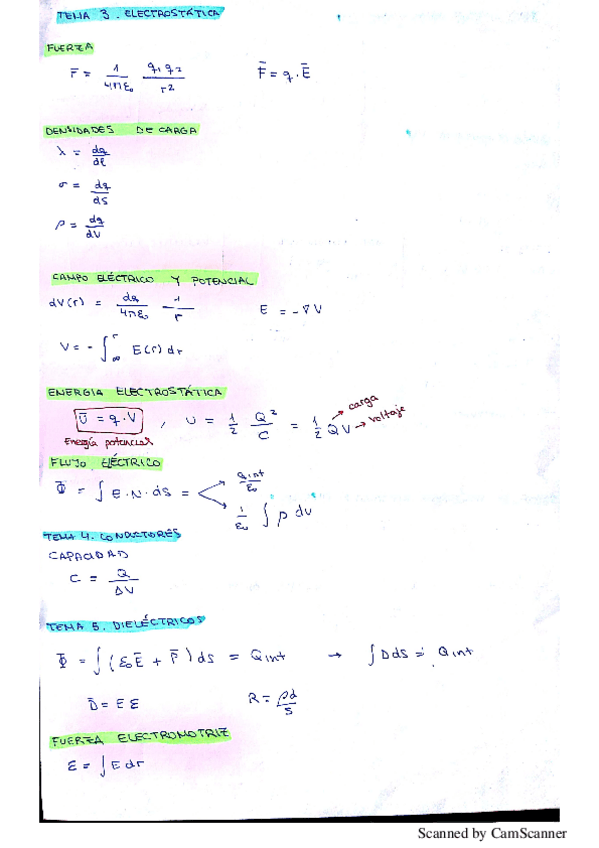 TEMA 3. ELECTROSTÁTICA
FUERZA
F̄ = 1/4πε₀ q₁q₂/r² F̄ = q · Ē
DENSIDADES DE CARGA
λ = dq/dl
σ = dq/ds
ρ = dq/dV
CAMPO ELÉCTRICO Y POTENCIAL
dV(r) = dq/4πε₀ 1/r E = -∇V
V = - ∫_∞^r E(r) dr
ENERGIA ELECTROSTÁTICA
Ū = q·V , U = 1/2 Q²/C = 1/2 QV → carga → voltaje
Energía potencial
FLUJO ELÉCTRICO
Φ̄ = ∫ E · N · ds = Qint/ε₀
1/ε₀ ∫ ρ dv
TEMA 4. CONDUCTORES
CAPACIDAD
C = Q/ΔV
TEMA 5. DIELÉCTRICOS
Φ̄ = ∫ (ε₀Ē + P̄) ds = Qint → ∫ D ds = Qint
D̄ = E ε R = ρd/S
FUERZA ELECTROMOTRIZ
ε = ∫ E dr
Scanned by CamScanner